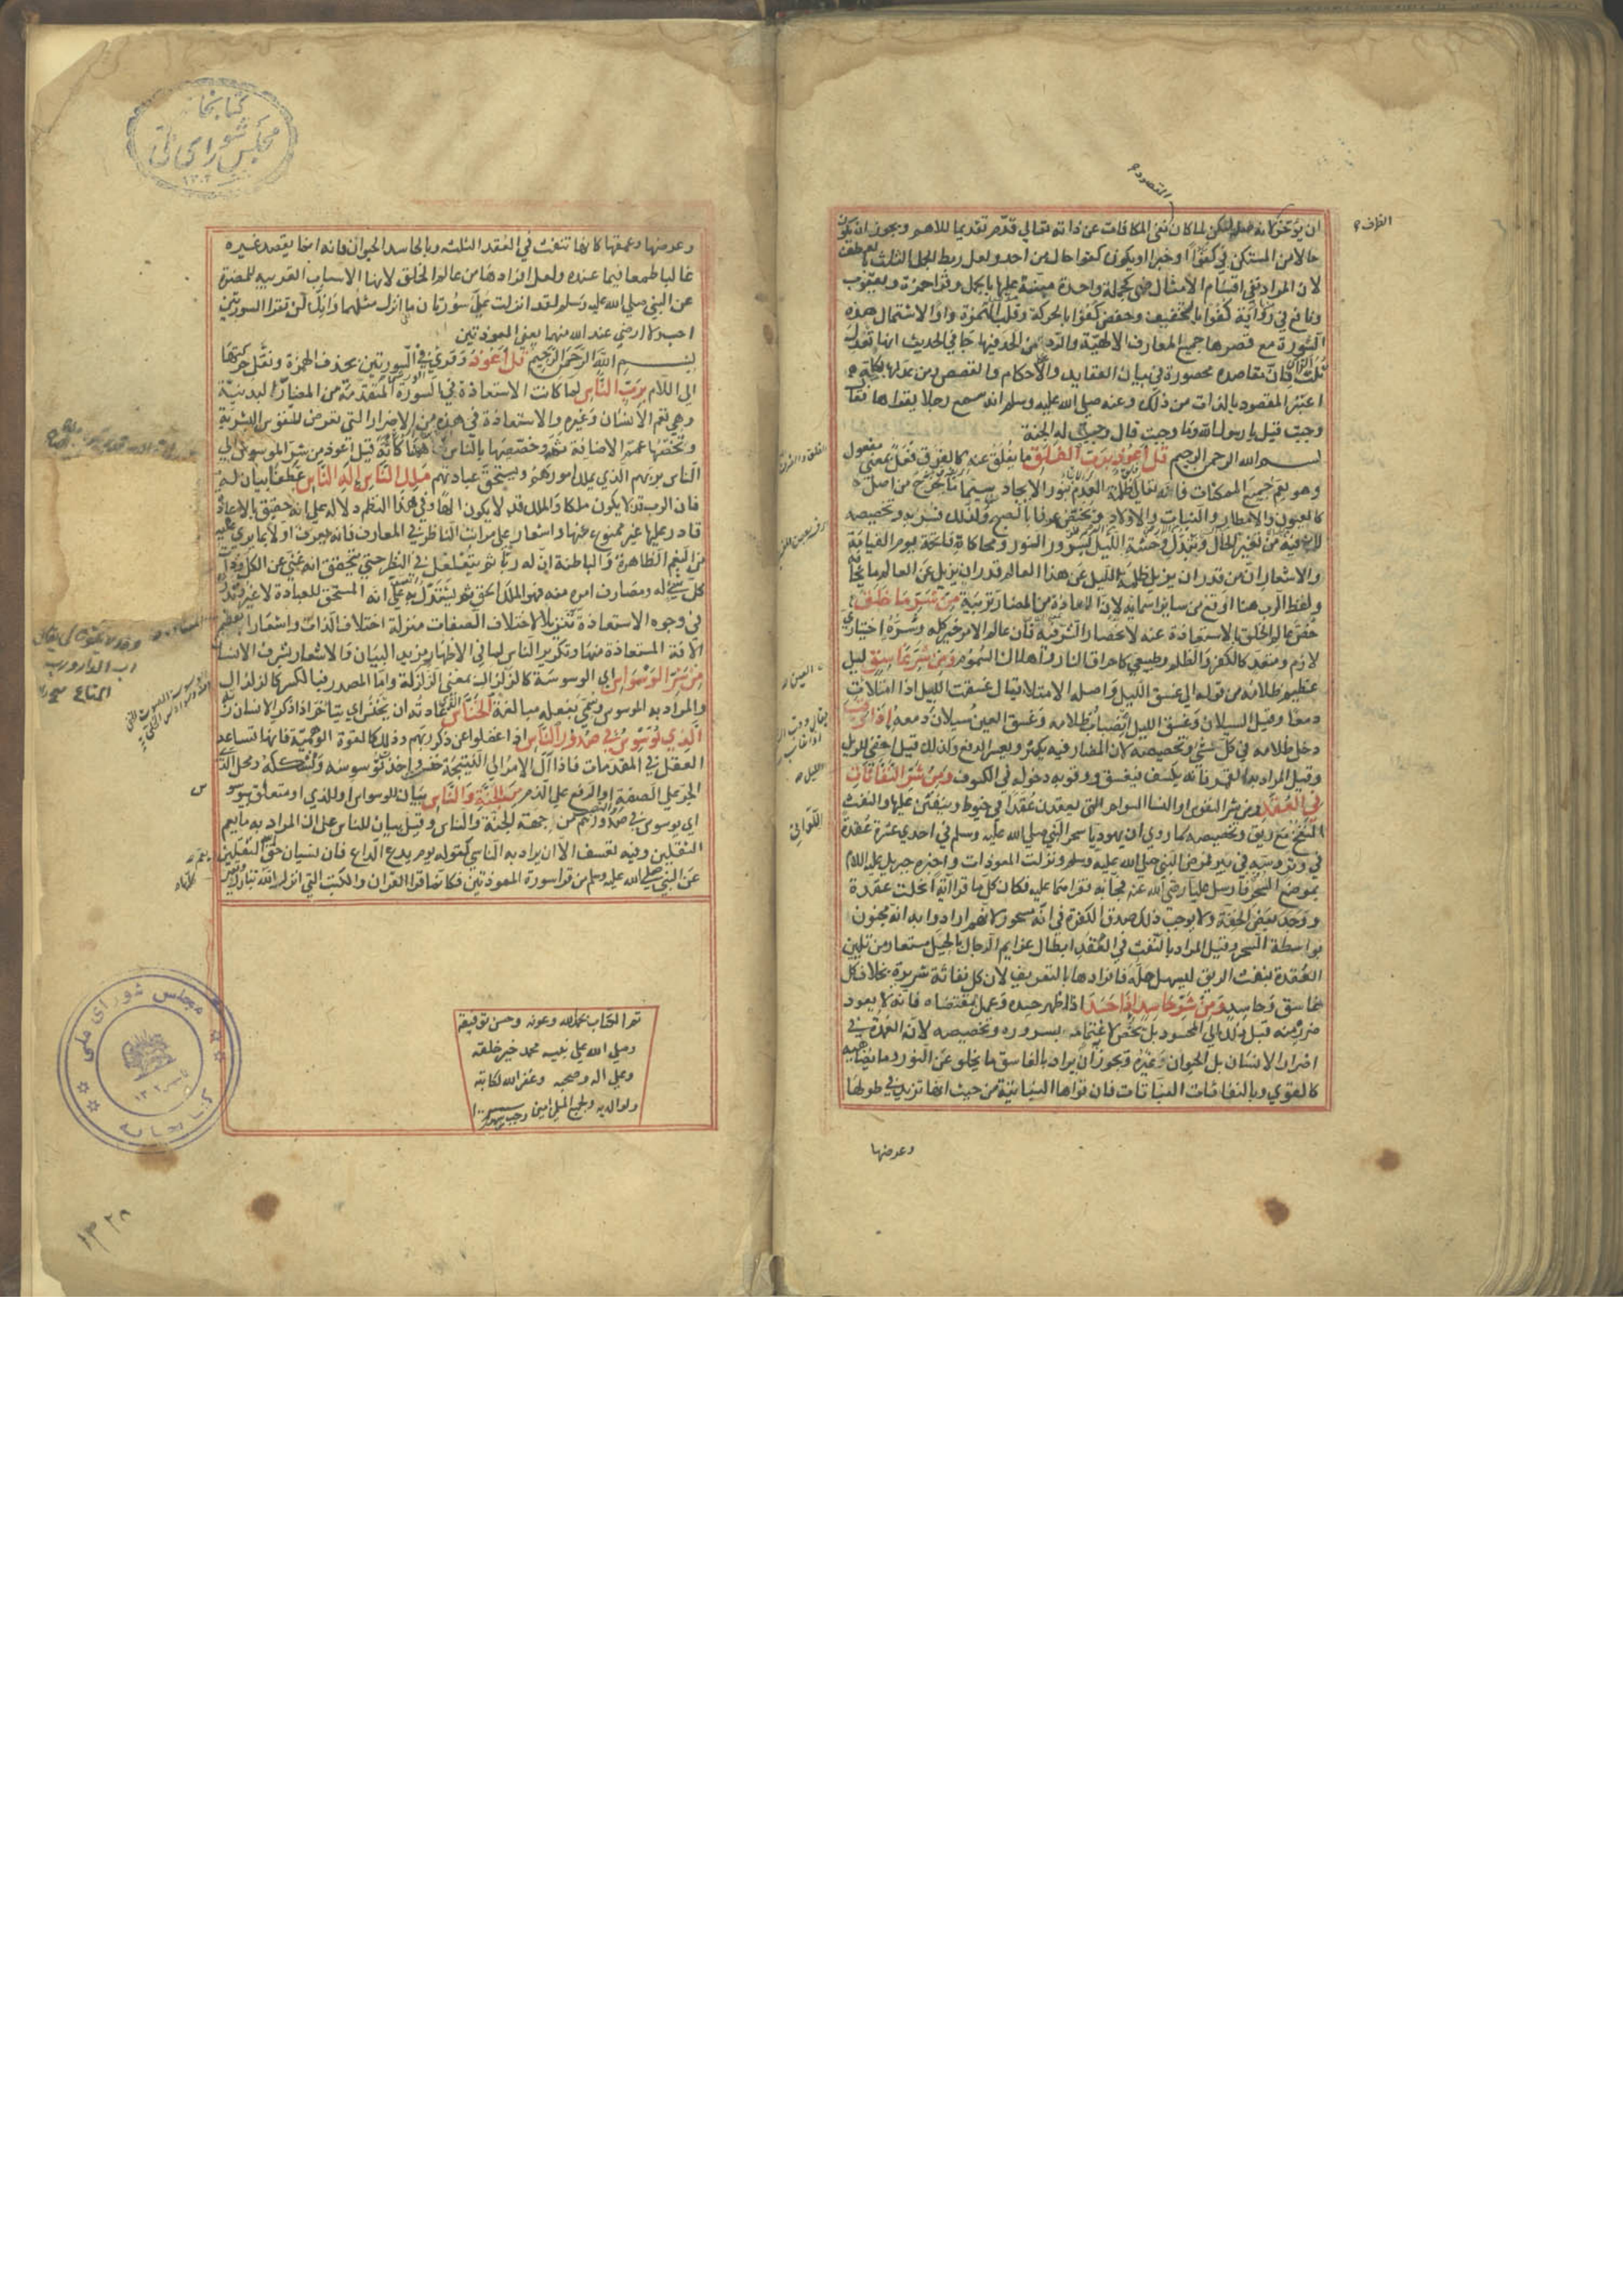 ان يؤخر لانه صلة لكن لما كان نفي المكافات عن ذاته تعالى قدم تقديما للاهم ويجوز ان يكون
حالا من المستكن في كفؤا او خبرا ويكون كفوا حال من احد ولعل ربط الجمل الثلث بالعطف
لان المراد نفي اقسام الامثال فهي كجملة واحدة منبهة عليها بالجمل وقرا حمزة ويعقوب
ونافع في رواية كفؤا بالتخفيف وحفص كفوا بالحركة وقلب الهمزة واوا ولاشتمال هذه
السورة مع قصرها جميع المعارف الالهية والرد على من الحد فيها جا في الحديث انها تعدل
ثلث القرآن فان مقاصده محصورة في بيان العقايد والاحكام والقصص ومن عدلها بكله
اعتبر المقصود بالذات من ذلك وعنه صلى الله عليه وسلم انه سمع رجلا يقراها فقال
وجبت قيل يا رسول الله وما وجبت قال وجبت له الجنة
بسم الله الرحمن الرحيم قل اعوذ برب الفلق ما يفلق عنه كالفرق فعل بمعنى مفعول
وهو يعم جميع الممكنات فانه تعالى فلق ظلمة العدم بنور الايجاد سيما ما يخرج من اصل
كالعيون والامطار والنبات والاولاد ويختص عرفا بالصبح ولذلك فسر به وتخصيصه
لما فيه من تغير الحال وتبدل وحشة الليل بسرور النور ومحاكاة فاتحة يوم القيامة
والاشعار بان من قدر ان يزيل ظلمة الليل عن هذا العالم قدر ان يزيل عن العالم ما يخافه
ولفظ الرب هنا اوقع من ساير اسمائه لان الاعاذة من المضار تربية من شر ما خلق
خص عالم الخلق بالاستعاذة عنه لانحصار الشر فيه فان عالم الامر خير كله وشره اختياري
لازم ومتعد كالكفر والظلم وطبيعي كاحراق النار واهلاك السموم ومن شر غاسق ليل
عظيم ظلامه من قوله الى غسق الليل واصله الامتلا يقال غسقت العين اذا امتلات
دمعا وقيل السيلان وغسق الليل انصباب ظلامه وغسق العين سيلان دمعه اذا وقب
دخل ظلامه في كل شي وتخصيصه لان المضار فيه يكثر ويعسر الدفع ولذلك قيل اخفى للويل
وقيل المراد به القمر فانه يكسف فيغسق ووقوبه دخوله في الكسوف ومن شر النفاثات
في العقد ومن شر النفوس او النسا السواحر التي يعقدن عقدا في خيوط وينفثن عليها والنفث
النفخ مع ريق وتخصيصه لما روي ان يهوديا سحر النبي صلى الله عليه وسلم في احدي عشرة عقدة
في وتر دسه في بير فمرض النبي صلى الله عليه وسلم ونزلت المعوذات واخبره جبريل عليه السلام
بموضع السحر فارسل عليا رضي الله عنه فجا به فقراهما عليه فكان كل ما قرا آية انحلت عقدة
ووجد بعض الخفة ولا يوجب ذلك صدق الكفرة في انه مسحور لانهم ارادوا به انه مجنون
بواسطة السحر وقيل المراد بالنفث في العقد ابطال عزايم الرجال بالحيل مستعار من تليين
العقدة بنفث الريق ليسهل حلها وافرادها بالتعريف لان كل نفاثة شريرة بخلاف كل
غاسق وحاسد ومن شر حاسد اذا حسد اذا ظهر حسده وعمل بمقتضاه فانه لا يعود
ضرر منه قبل ذلك الى المحسود بل يخص به لاغتمامه بسروره وتخصيصه لانه العمدة في
اضرار الانسان بل الحيوان وغيره ويجوز ان يراد بالغاسق ما يخلو عن النور وما يضاهيه
كالقوي وبالنفاثات النباتات فان قواها النباتية من حيث انها تزيد في طولها
وعرضها
وعرضها وعمقها كانها تنفث في العقد الثلثه وبالحاسد الحيوان فانه انما يقصد غيره
غالبا طمعا فيما عنده ولعل افرادها من عالم الخلق لانها الاسباب القريبه للمضرة
عن النبي صلى الله عليه وسلم لقد انزلت علي سورتان ما انزل مثلهما وانك لن تقرا السورتين
احب ولا ارضي عند الله منهما يعني المعوذتين
بسم الله الرحمن الرحيم قل اعوذ وقري في السورتين بحذف الهمزة ونقل حركتها
الى اللام برب الناس لما كانت الاستعاذة في السورة المتقدمة من المضار البدنية
وهي تعم الانسان وغيره والاستعاذة في هذه من الاضرار التي تعرض للنفوس البشرية
وتخصها عمم الاضافة ثمه وخصصها بالناس ههنا كانه قيل اعوذ من شر الموسوس الى
الناس بربهم الذي يملك امورهم ويستحق عبادتهم ملك الناس اله الناس عطفا بيان له
فان الرب قد لا يكون ملكا والملك قد لا يكون الها وفي هذا النظم دلاله على انه حقيق بالاعاذة
قادر عليها غير ممنوع عنها واشعار على مراتب الناظر في المعارف فانه يعرف اولا بما يري عليه
من النعم الظاهرة والباطنة ان له ربا ثم يتغلغل في النظر حتى يتحقق انه غني عن الكل وذات
كل شي له ومصارف امره منه فهو الملك الحق ثم يستدل به على انه المستحق للعبادة لا غير وتدرج
في وجوه الاستعاذة تنزيلا لاختلاف الصفات منزلة اختلاف الذات واشعارا بعظم
الافة المستعاذة منها وتكرير الناس لما في الاظهار من مزيد البيان والاشعار بشرف الانسان
من شر الوسواس اي الوسوسة كالزلزال بمعنى الزلزلة واما المصدر فبالكسر كالزلزال
والمراد به الموسوس وسمي بفعله مبالغة الخناس الذي عادته ان يخنس اي يتاخر اذا ذكر الانسان ربه
الذي يوسوس في صدور الناس اذا غفلوا عن ذكر ربهم وذلك كالقوة الوهمية فانها تساعد
العقل في المقدمات فاذا آل الامر الى النتيجة خنس واخذ يوسوسه ويشككه ومحل الذي
الجر على الصفة او الرفع على الذم من الجنة والناس بيان للوسواس او للذي او متعلق بيوسوس
اي يوسوس في صدورهم من جهة الجنة والناس وقيل بيان للناس على ان المراد به ما يعم
الثقلين وفيه تعسف الا ان يراد به الناسي كقوله يوم يدع الداع فان نسيان حق الله يعم الثقلين
عن النبي صلى الله عليه وسلم من قرا سورة المعوذتين فكانما قرا القرآن والكتب التي انزل الله تبارك
تم الكتاب بحمد الله وعونه وحسن توفيقه
وصلى الله على نبيه محمد خير خلقه
وعلى اله وصحبه وغفر الله لكاتبه
ولوالديه
كتابخانه
مجلس شوراى ملى
١٣٠٢
مجلس شوراى ملى
كتابخانه